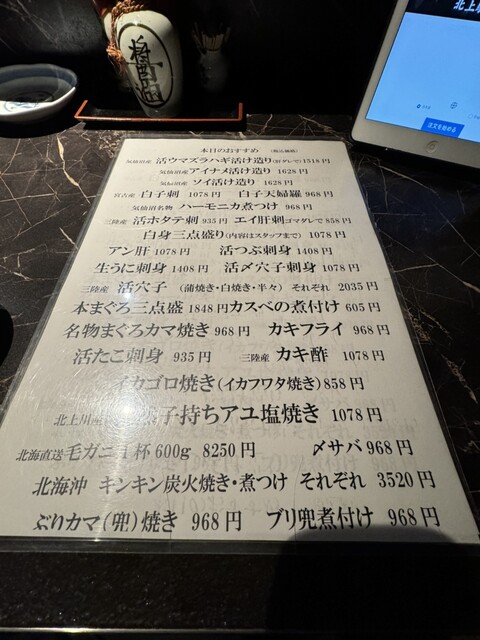 醤油
北上
注文を始める
本日のおすすめ (税込価格)
気仙沼産 活ウマズラハギ活け造り(肝ダレで)1518円
気仙沼産 アイナメ活け造り 1628円
気仙沼産 ソイ活け造り 1628円
宮古産 白子刺 1078円 白子天婦羅 968円
気仙沼名物 ハーモニカ煮つけ 968円
三陸産 活ホタテ刺 935円 エイ肝刺ゴマダレで858円
白身三点盛り(内容はスタッフまで) 1078円
アン肝 1078円 活つぶ刺身 1408円
生うに刺身 1408円 活〆穴子刺身 1078円
三陸産 活穴子 (蒲焼き・白焼き・半々) それぞれ 2035円
本まぐろ三点盛 1848円 カスベの煮付け 605円
名物まぐろカマ焼き 968円 カキフライ 968円
活たこ刺身 935円 三陸産 カキ酢 1078円
イカゴロ焼き(イカフワタ焼き)858円
北上川産 子持ちアユ塩焼き 1078円
北海直送 毛ガニ1杯600g 8250円 〆サバ 968円
北海沖 キンキン炭火焼き・煮つけ それぞれ 3520円
ぶりカマ(兜)焼き 968円 ブリ兜煮付け 968円